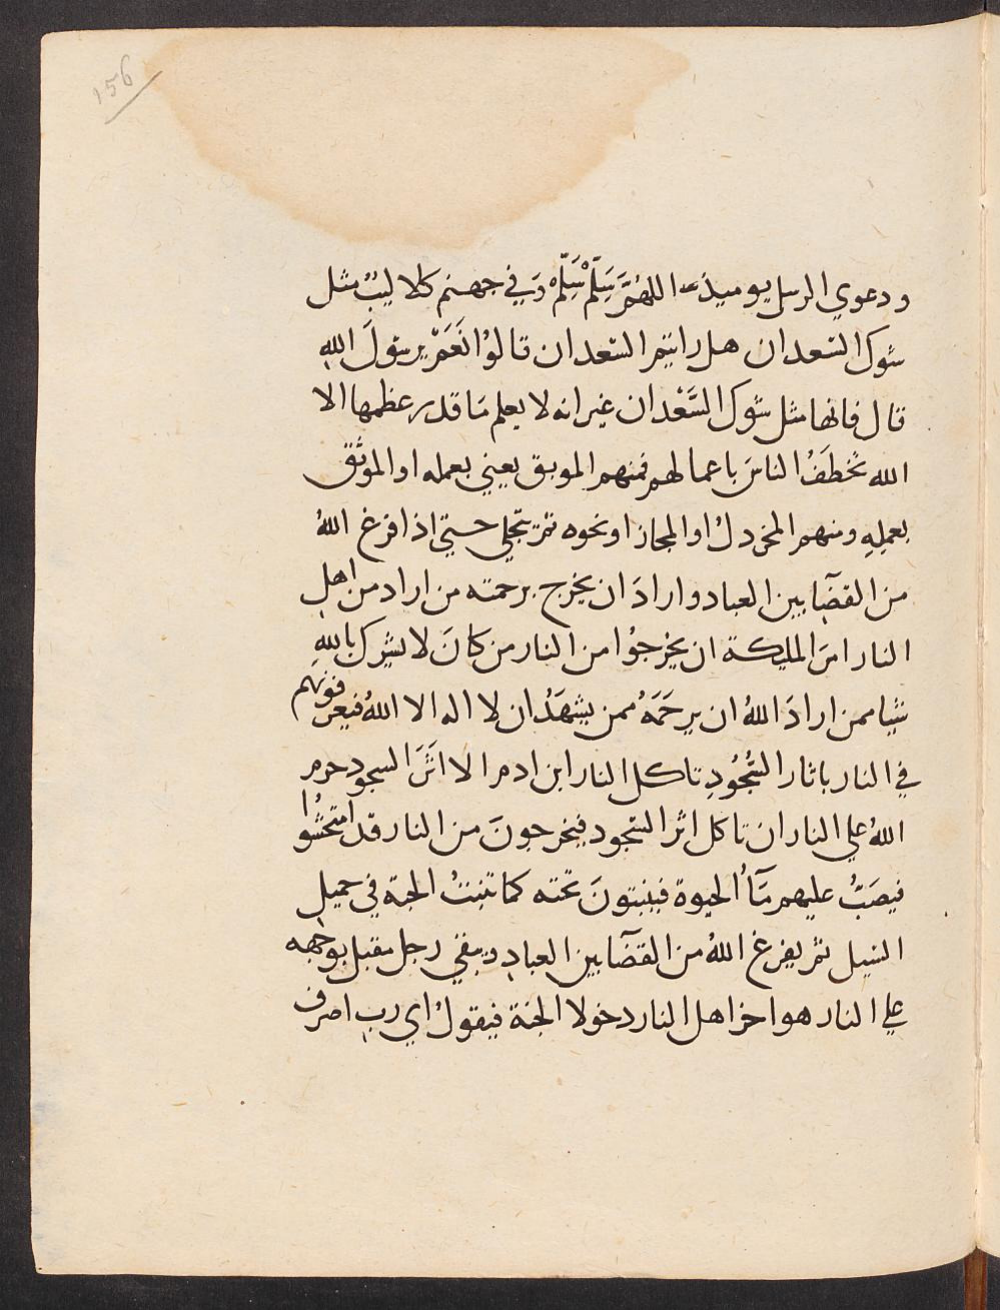 156
ودعوي الرسل يوميذ اللهُمَّ سَلِّمْ سَلِّمْ وَفي جهنم كلاليبُ مثل
شوك السعدان هل رايتم السعدان قالوُا نَعَمْ يرسُولَ اللهِ
قال فانها مثل شوك السَّعْدان غير انه لا يعلم مَا قدر عظمها الا
الله تخطَفُ الناسَ باعمالهم فمنهم الموبق يعني بعمله او الموثق
بعملِهِ ومنهم المخردلُ او المجاز او نحوه ثم يتجلي حتي اذا فرغ اللهُ
من القضآ بين العباد وارادَ ان يخرج برحمته من اراد من اهلِ
النار امرَ المليكة ان يخرجوُا من النار من كانَ لا يشرك باللهِ
شيا ممن ارادَ اللهُ ان يرحَمَهُ ممن يشهَدُ ان لا اله الا اللهُ فيعرفونهم
في النار باثار السُّجُودِ تاكل النار ابن ادم الا اثَرَ السجود حرم
اللهُ علي النار ان تاكل اثر السّجود فيخرجونَ من النار قد امتحشُوا
فيصَبُّ عليهم مَآُ الحيوة فينبتونَ تحته كما تنبتُ الحبة في حميلِ
السَيل ثم يفرغ اللهُ من القضآ بين العبادِ ويبقي رجل مقبل بوجهه
علي النار هو اخر اهل النار دخولا الجنة فيقولُ اي ربِ اصرف